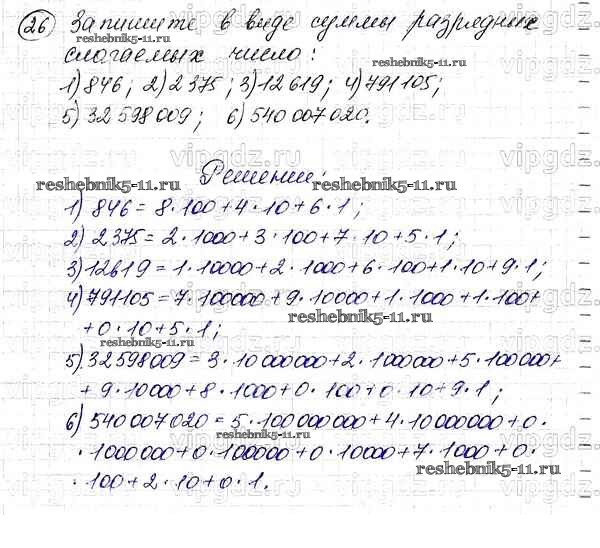 26 Запишите в виде суммы разрядных
слагаемых число:
1) 846; 2) 2 375; 3) 12 619; 4) 791 105;
5) 32 598 009; 6) 540 007 020.
Решение:
reshebnik5-11.ru reshebnik5-11.ru
1) 846 = 8·100+4·10+6·1;
2) 2375 = 2·1000+3·100+7·10+5·1;
3) 12619 = 1·10000+2·1000+6·100+1·10+9·1;
4) 791105 = 7·100000+9·10000+1·1000+1·100+
reshebnik5-11.ru
+0·10+5·1;
5) 32598009 = 3·10000000+2·1000000+5·100000+
+9·10000+8·1000+0·100+0·10+9·1;
6) 540 007 020 = 5·100 000 000+4·10 000 000+0·
reshebnik5-11.ru
·1000000+0·100000+0·10000+7·1000+0·
reshebnik5-11.ru
·100+2·10+0·1.